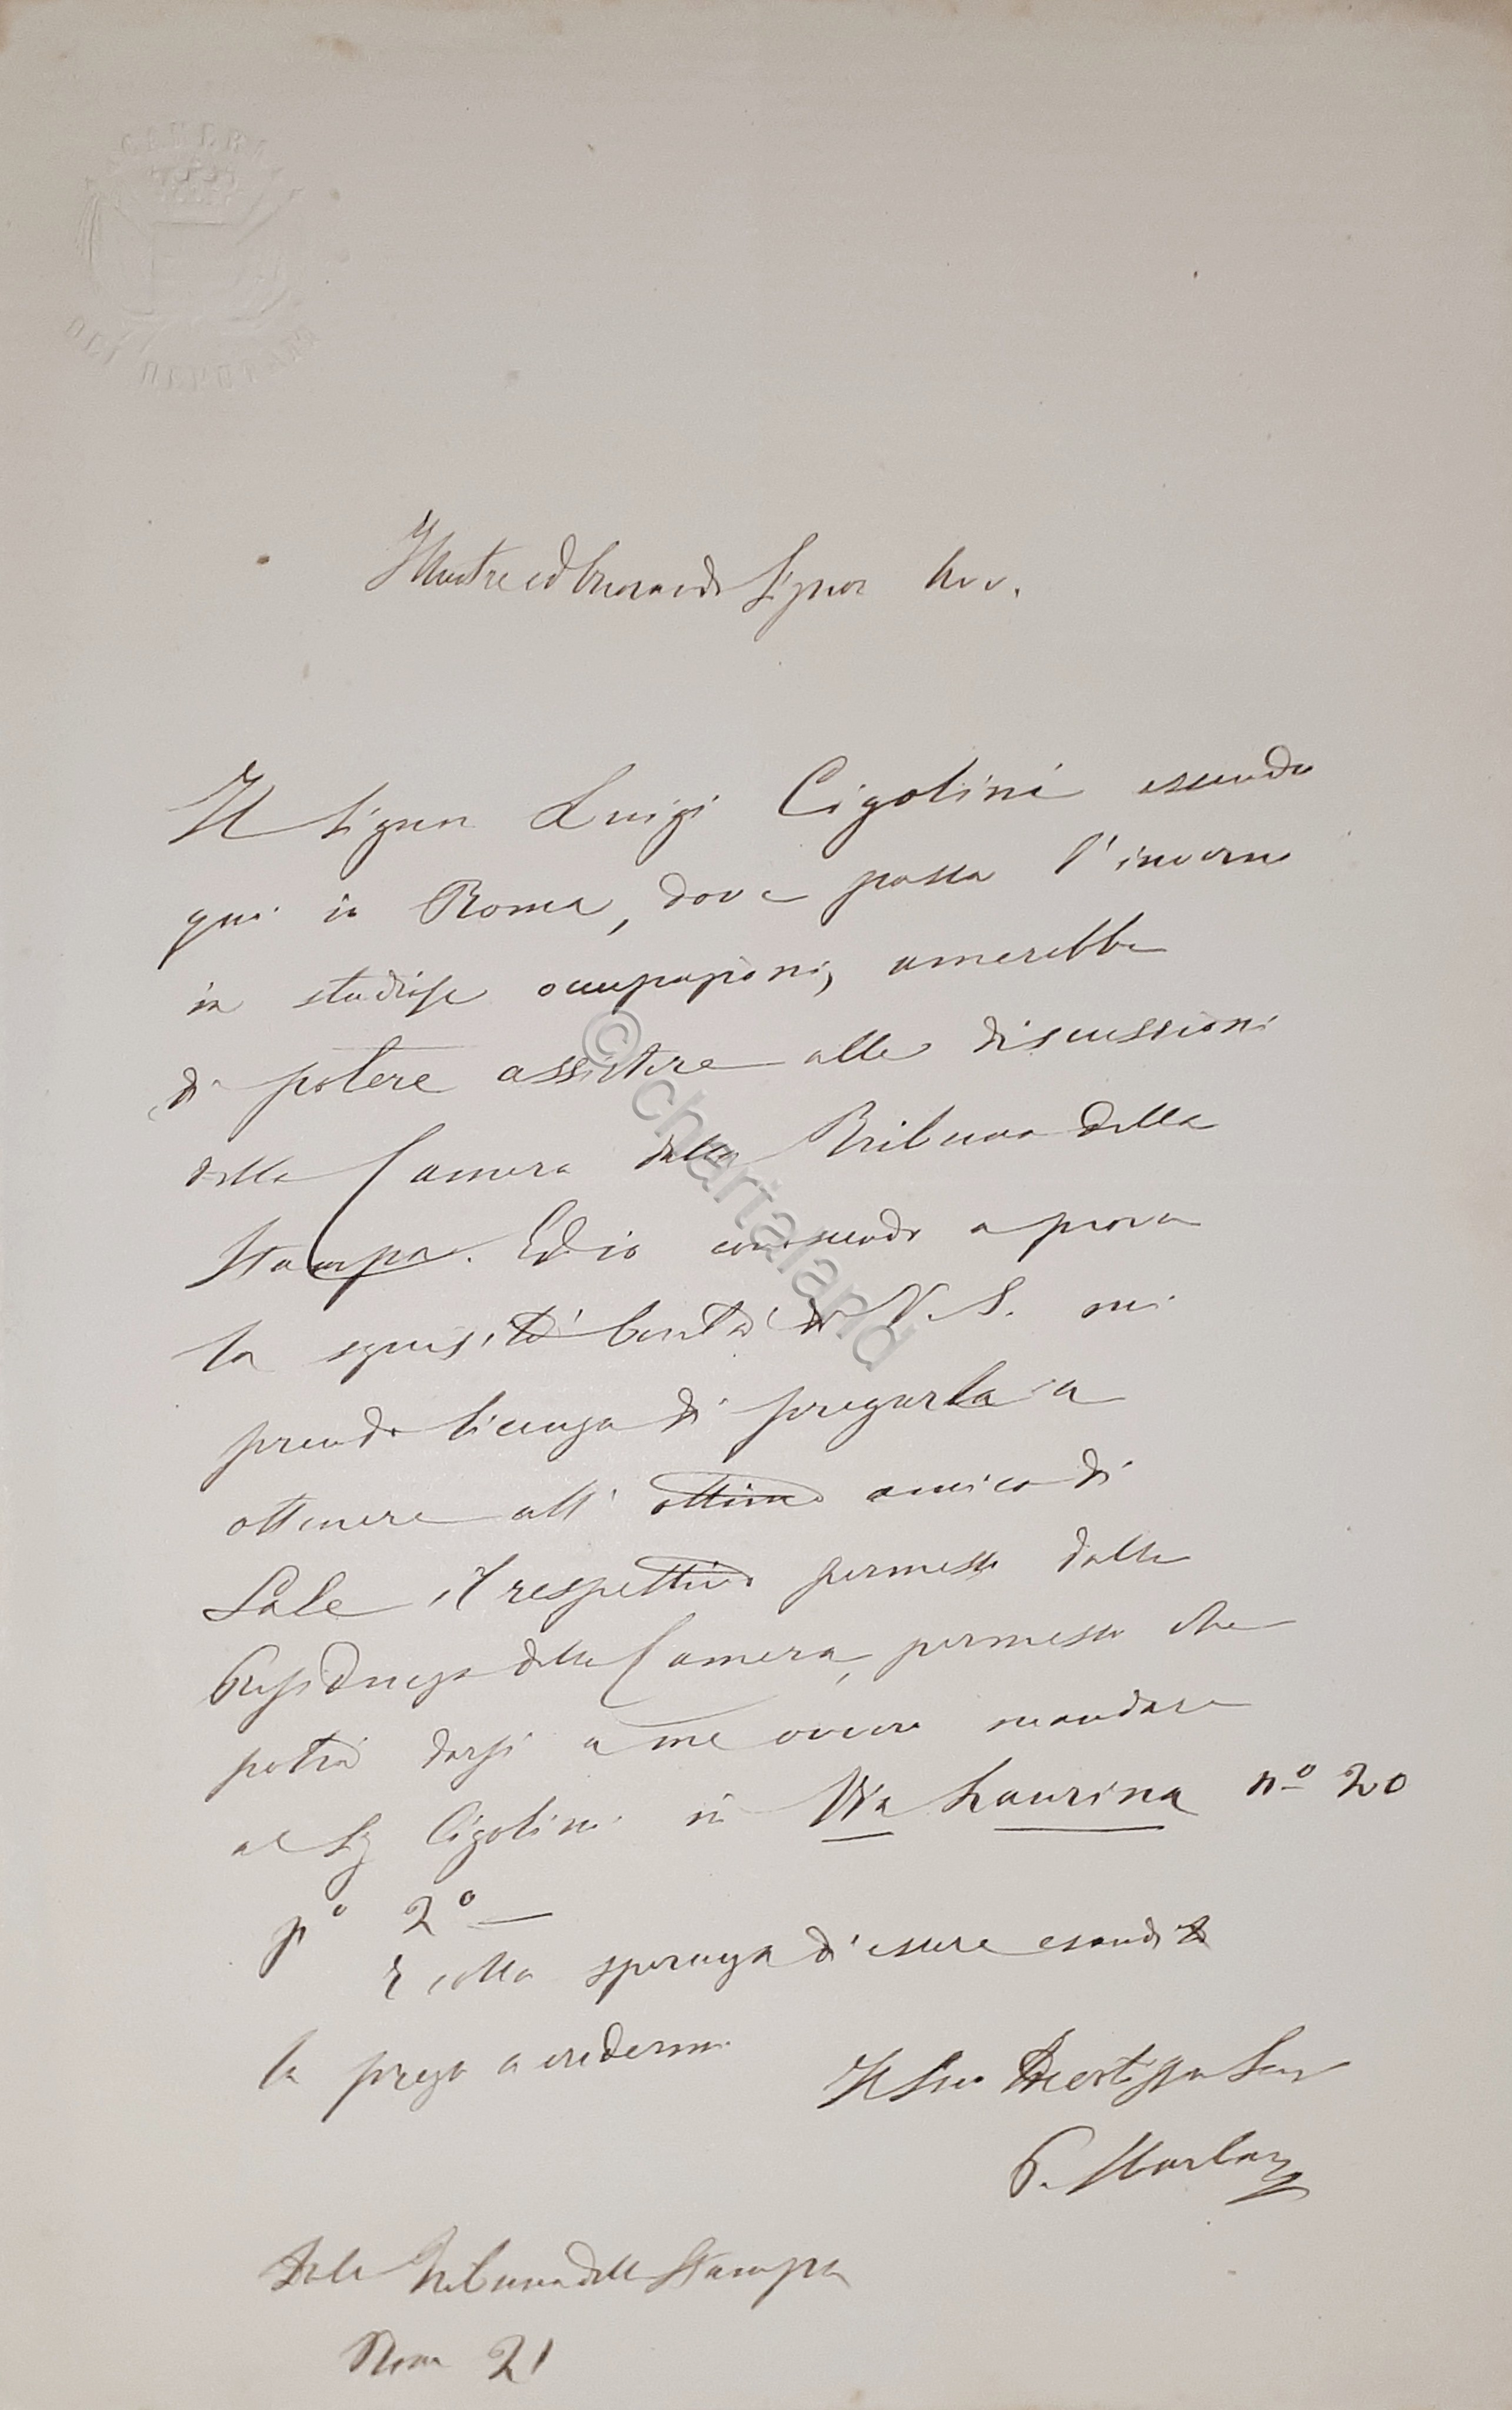 CAMERA
DEI DEPUTATI
Illustre ed Onorando Signor Avv.
Il Signor Luigi Cigolini essendo
qui in Roma, dove passa l'inverno
in studiose occupazioni, amerebbe
di potere assistere alle discussioni
della Camera dalla Tribuna della
Stampa. Ed io conoscendo a prova
la squisita bontà di V. S. mi
prendo licenza di pregarla a
ottenere all' ottimo amico di
Sale il respettivo permesso dalla
Presidenza della Camera, permesso che
potrà darsi a me ovvero mandare
al Sig Cigolini in Via Laurina nº 20
pº 2º —
E colla speranza d'essere esaudito
la prego a credermi
Il Suo
P.
Dala Tribuna della Stampa
Roma 21
© chartaland